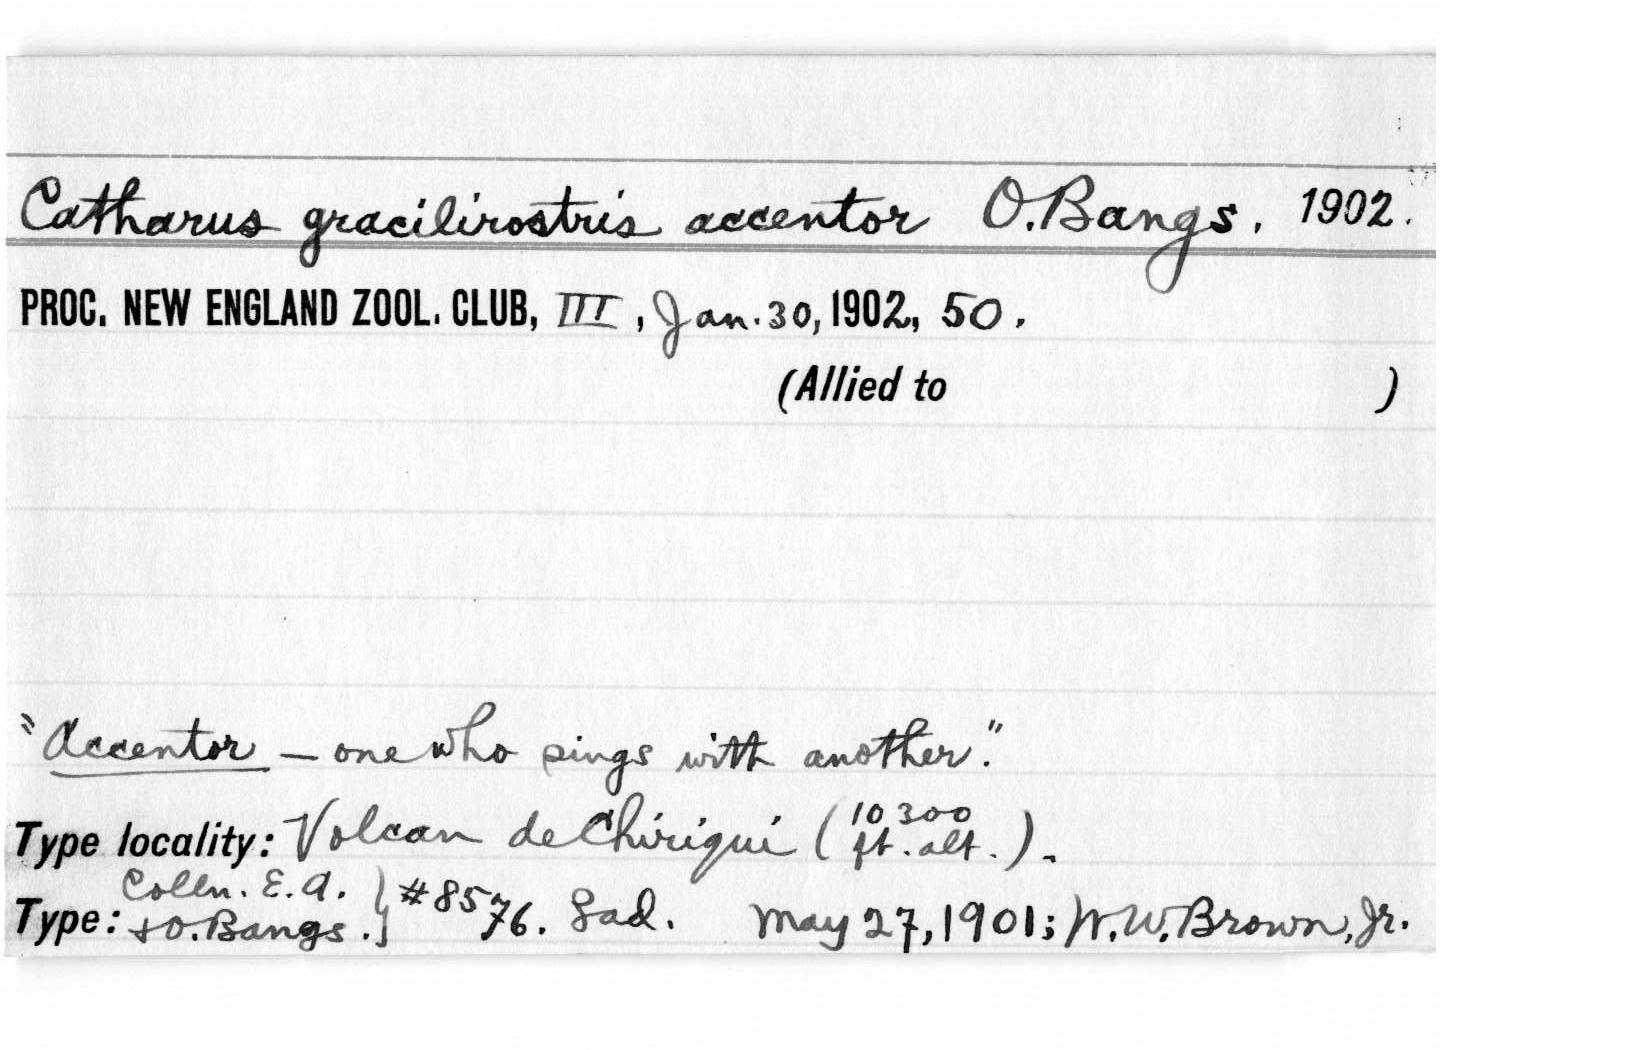 Catharus gracilirostris accentor O. Bangs. 1902.
PROC. NEW ENGLAND ZOOL. CLUB, III, Jan. 30, 1902, 50.
(Allied to )
"Accentor — one who sings with another."
Type locality: Volcan de Chiriqui (10300 ft. alt.).
Type: Colln. E.A. + O. Bangs. } #8576. ad. May 27, 1901; W. W. Brown, Jr.